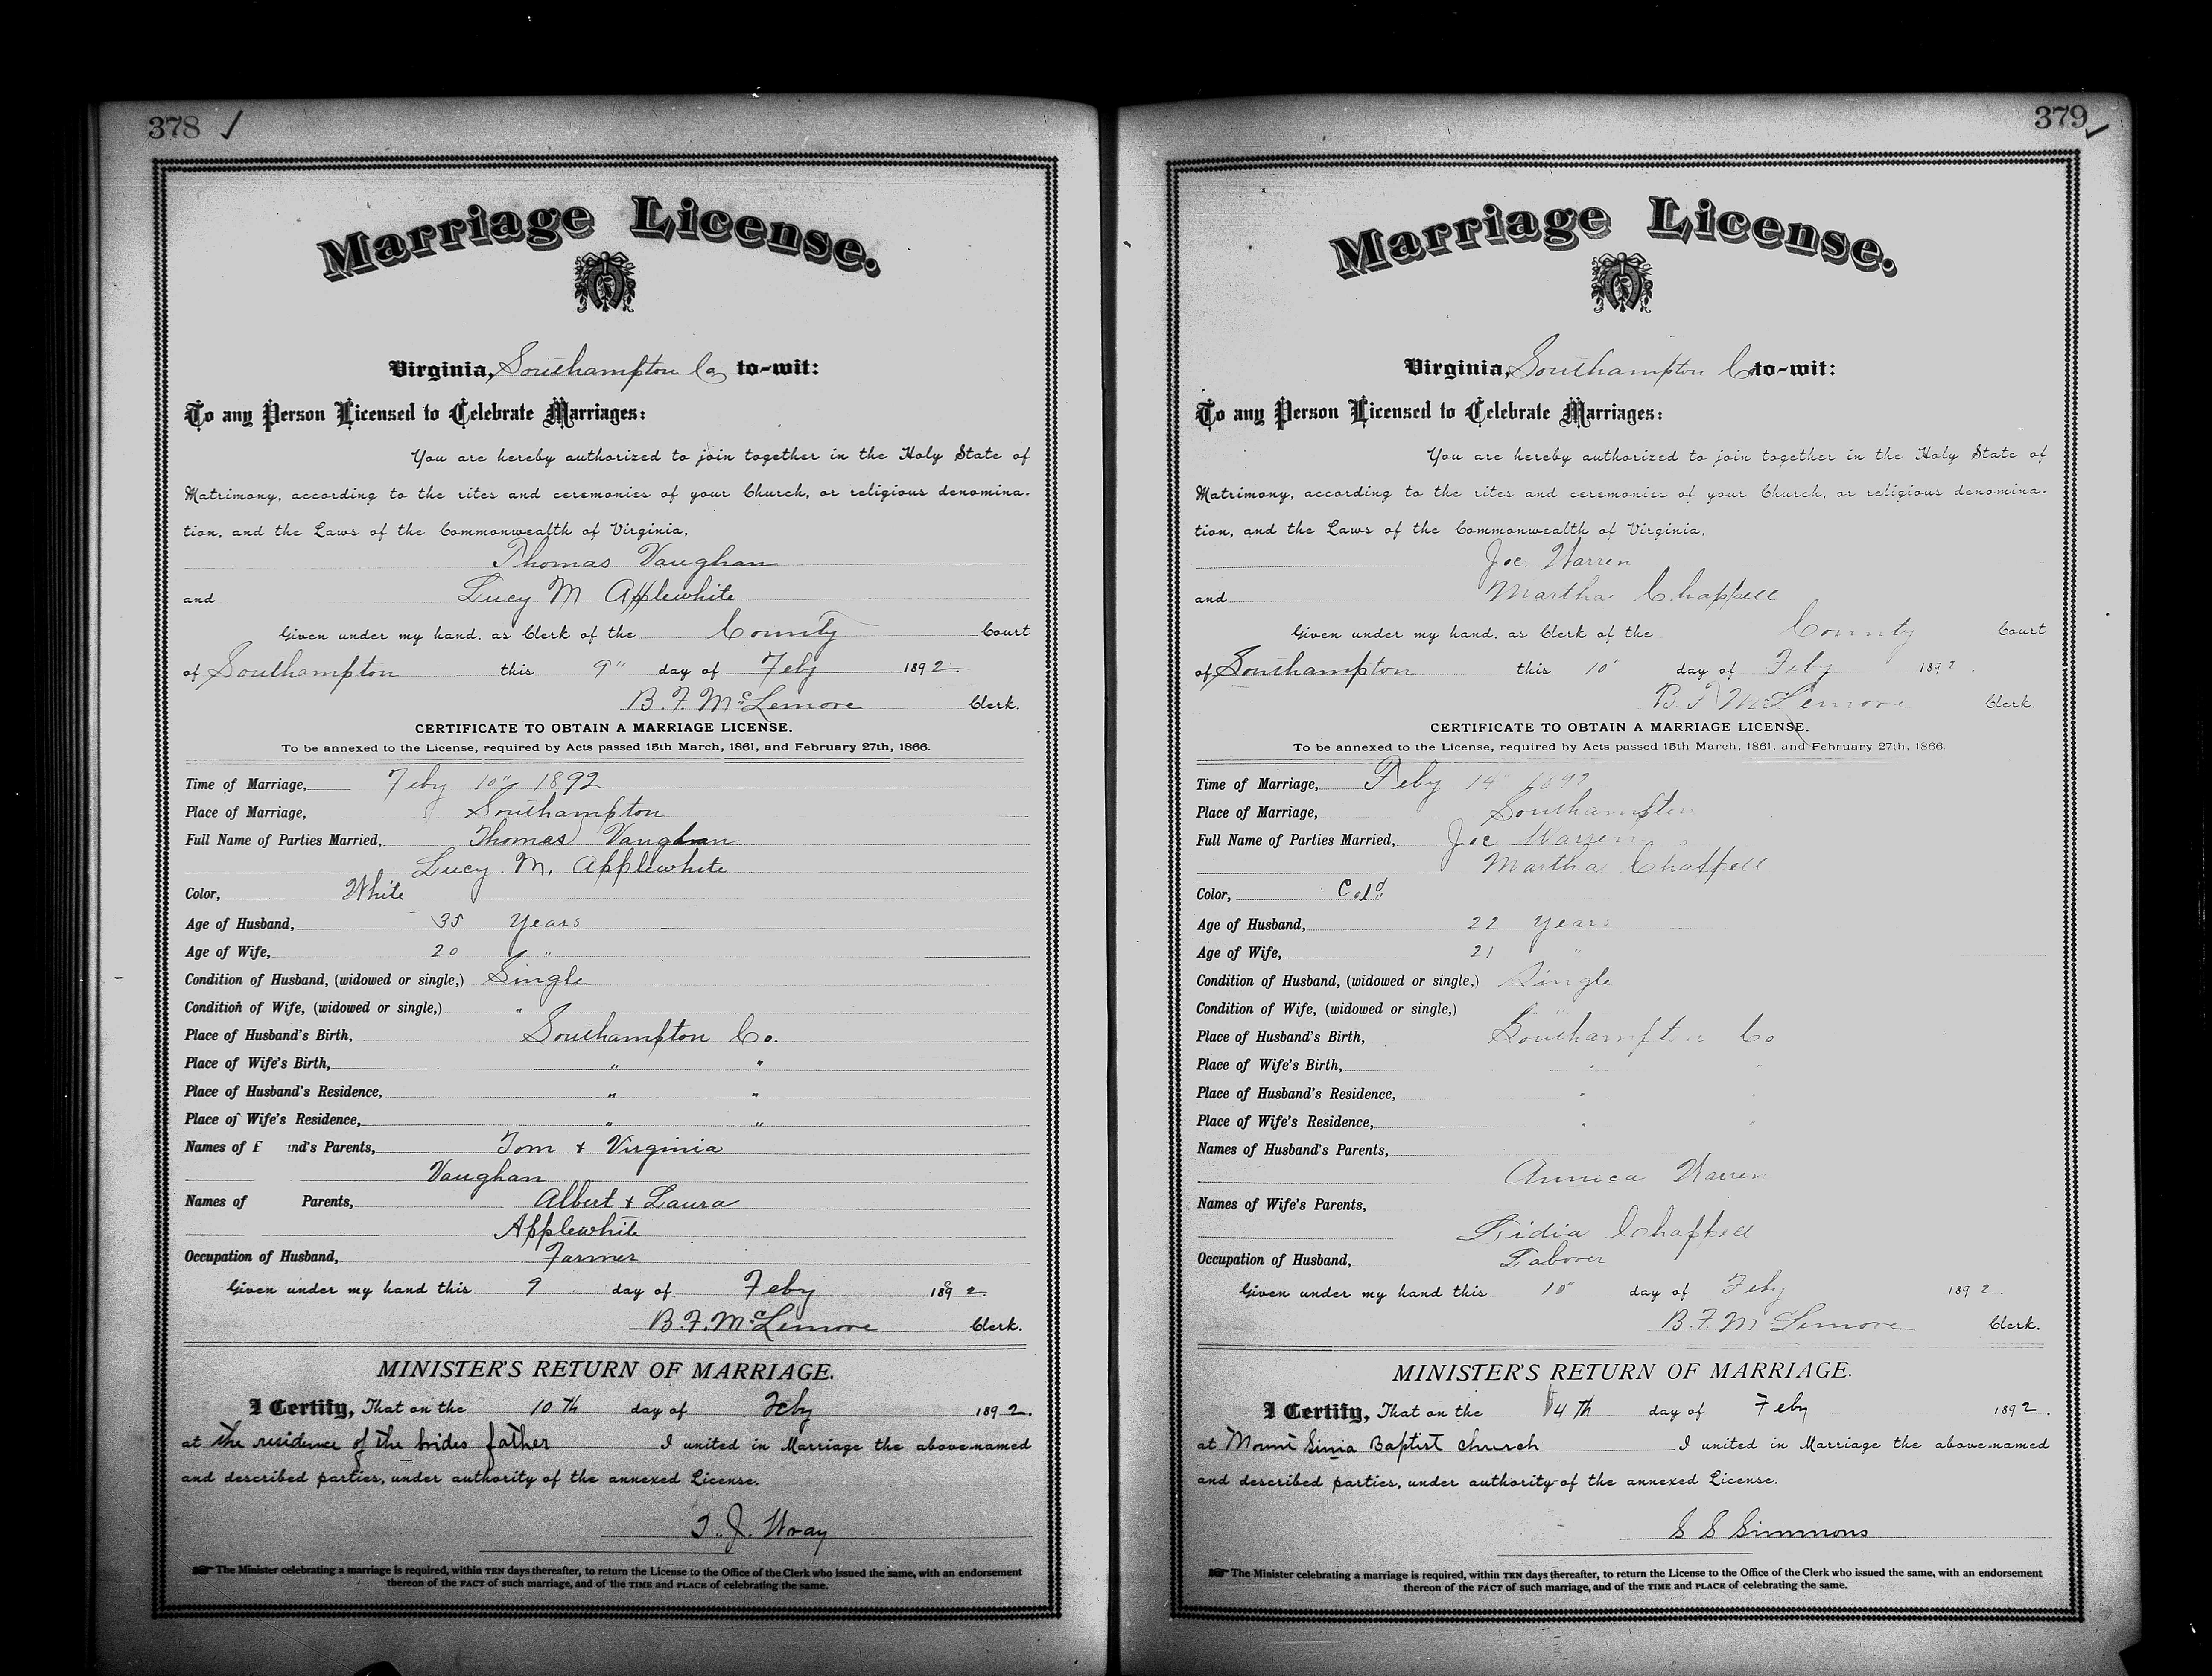 378 ✓
Marriage License.
Virginia, Southampton Co to-wit:
To any Person Licensed to Celebrate Marriages:
You are hereby authorized to join together in the Holy State of
Matrimony, according to the rites and ceremonies of your Church, or religious denomina-
tion, and the Laws of the Commonwealth of Virginia,
Thomas Vaughan
and Lucy M Applewhite
Given under my hand, as Clerk of the County Court
of Southampton this 9" day of Feby 1892.
B. F. McLemore Clerk.
CERTIFICATE TO OBTAIN A MARRIAGE LICENSE.
To be annexed to the License, required by Acts passed 15th March, 1861, and February 27th, 1866.
Time of Marriage, Feby 10" 1892
Place of Marriage, Southampton
Full Name of Parties Married, Thomas Vaughan
Lucy M. Applewhite
Color, White
Age of Husband, 35 Years
Age of Wife, 20 "
Condition of Husband, (widowed or single,) Single
Condition of Wife, (widowed or single,) "
Place of Husband's Birth, Southampton Co.
Place of Wife's Birth, " "
Place of Husband's Residence, " "
Place of Wife's Residence, " "
Names of nd's Parents, Tom & Virginia
Vaughan
Names of Parents, Albert & Laura
Applewhite
Occupation of Husband, Farmer
Given under my hand this 9 day of Feby 1892.
B. F. McLemore Clerk.
MINISTER'S RETURN OF MARRIAGE.
I Certify, That on the 10 Th day of Feby 1892.
at the residence of the brides father I united in Marriage the above-named
and described parties, under authority of the annexed License.
T. J. Wray
☞ The Minister celebrating a marriage is required, within TEN days thereafter, to return the License to the Office of the Clerk who issued the same, with an endorsement
thereon of the FACT of such marriage, and of the TIME and PLACE of celebrating the same.
379 ✓
Marriage License.
Virginia, Southampton Co to-wit:
To any Person Licensed to Celebrate Marriages:
You are hereby authorized to join together in the Holy State of
Matrimony, according to the rites and ceremonies of your Church, or religious denomina-
tion, and the Laws of the Commonwealth of Virginia,
Joe. Warren
and Martha Chappell
Given under my hand, as Clerk of the County Court
of Southampton this 10" day of Feby 1892.
B. F McLemore Clerk.
CERTIFICATE TO OBTAIN A MARRIAGE LICENSE.
To be annexed to the License, required by Acts passed 15th March, 1861, and February 27th, 1866.
Time of Marriage, Feby 14" 1892
Place of Marriage, Southampton
Full Name of Parties Married, Joe Warren
Martha Chappell
Color, Cold
Age of Husband, 22 Years
Age of Wife, 21 "
Condition of Husband, (widowed or single,) Single
Condition of Wife, (widowed or single,) "
Place of Husband's Birth, Southampton Co
Place of Wife's Birth, " "
Place of Husband's Residence, " "
Place of Wife's Residence, " "
Names of Husband's Parents,
Warren
Names of Wife's Parents,
Lidia Chappell
Occupation of Husband, Laborer
Given under my hand this 10" day of Feby 1892.
B. F. McLemore Clerk.
MINISTER'S RETURN OF MARRIAGE.
I Certify, That on the 14 Th day of Feby 1892.
at Mount Sinia Baptist church I united in Marriage the above-named
and described parties, under authority of the annexed License.
S S Simmons
☞ The Minister celebrating a marriage is required, within TEN days thereafter, to return the License to the Office of the Clerk who issued the same, with an endorsement
thereon of the FACT of such marriage, and of the TIME and PLACE of celebrating the same.